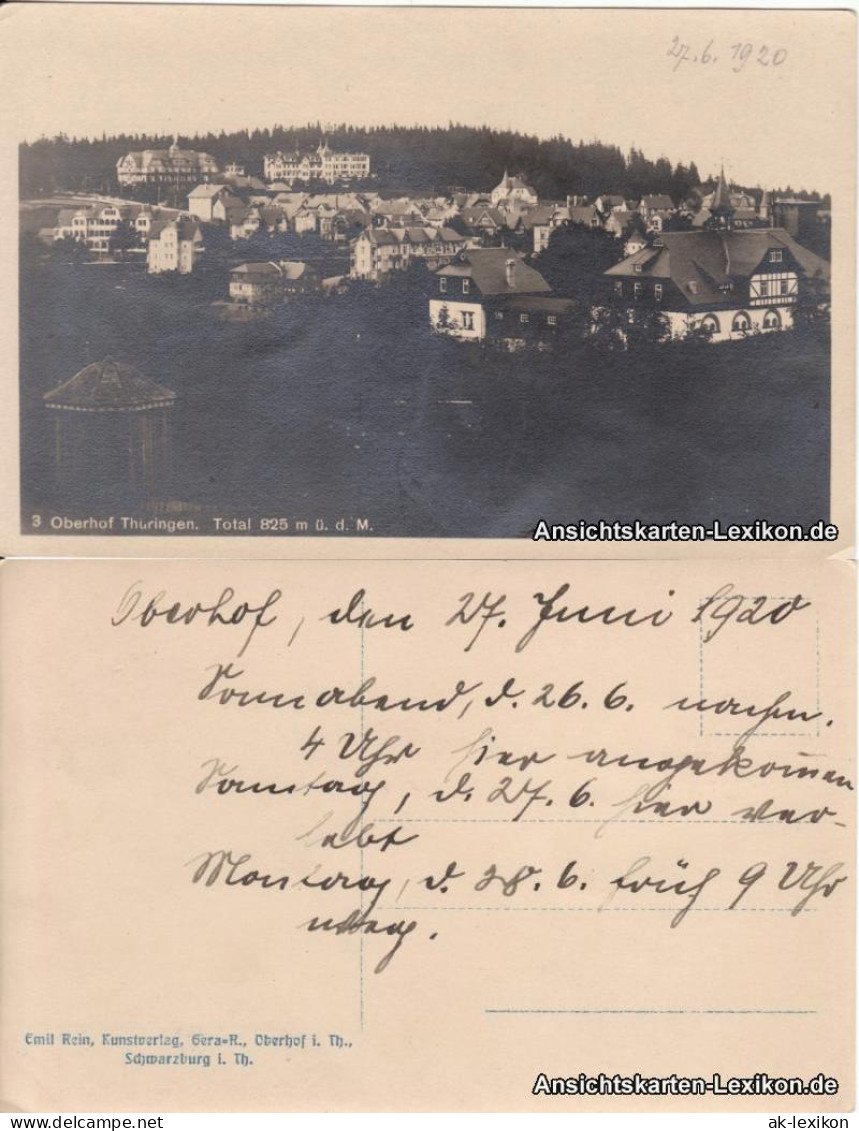 27.6.1920
3 Oberhof Thüringen. Total 825 m ü. d. M.
Ansichtskarten-Lexikon.de
Oberhof, den 27. Juni 1920
Sonnabend, d. 26.6. nachm.
4 Uhr hier angekommen
Sonntag, d. 27.6. hier ver-
lebt
Montag, d. 28.6. früh 9 Uhr
weg.
Emil Rein, Kunstverlag, Gera=R., Oberhof i. Th.,
Schwarzburg i. Th.
Ansichtskarten-Lexikon.de
ak-lexikon